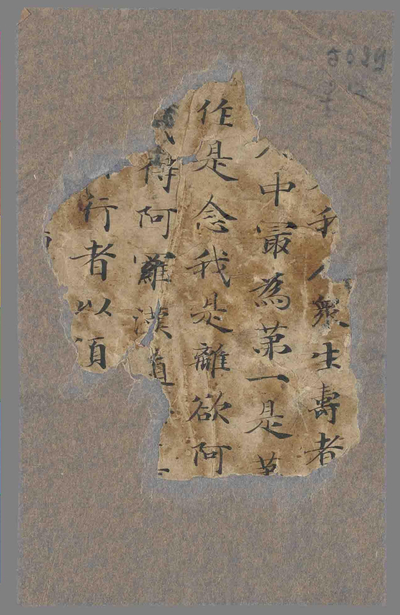 我人衆生壽者
人中㝡為苐一是苐
作是念我是離欲阿
我得阿羅漢道
行者以須